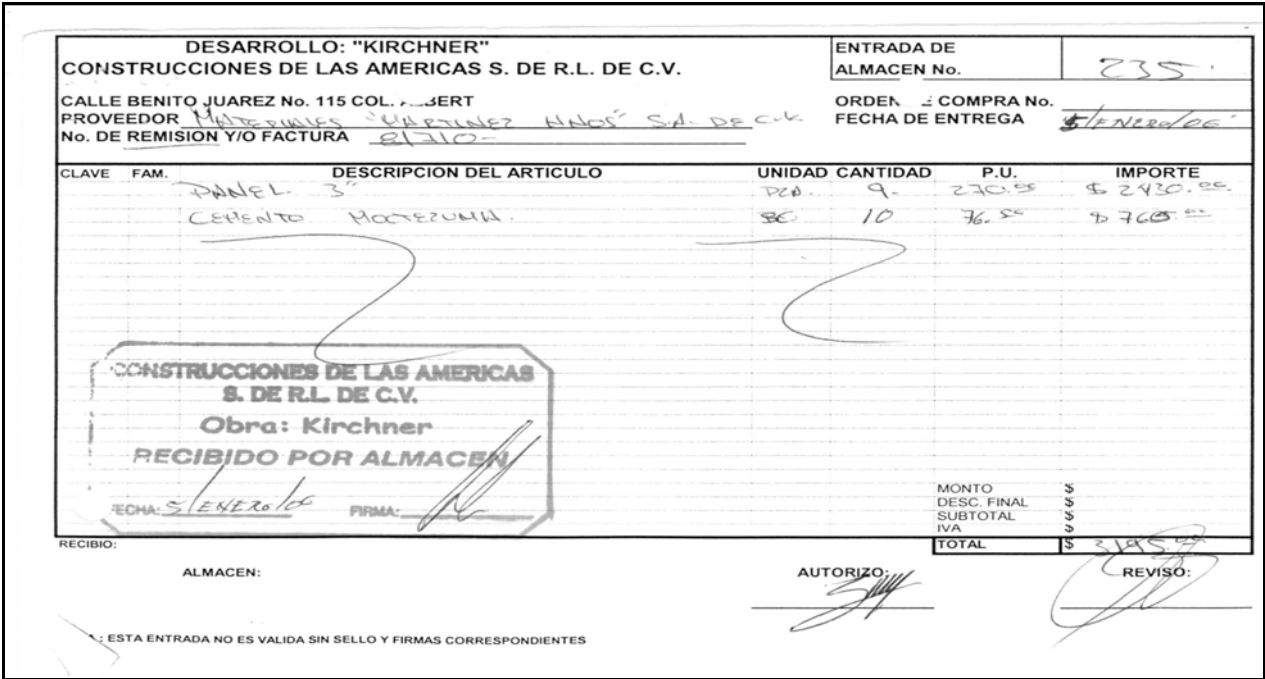 DESARROLLO: "KIRCHNER"
CONSTRUCCIONES DE LAS AMERICAS S. DE R.L. DE C.V.
ENTRADA DE
ALMACEN No. 235
CALLE BENITO JUAREZ No. 115 COL.
PROVEEDOR MATERIALES "MARTINEZ HNOS" S.A. DE C.V.
No. DE REMISION Y/O FACTURA 81710-
ORDEN COMPRA No.
FECHA DE ENTREGA 5/ENERO/06
CLAVE FAM. DESCRIPCION DEL ARTICULO UNIDAD CANTIDAD P.U. IMPORTE
PANEL 3" PZA. 9- 270.00 $ 2430.00
CEMENTO MOCTEZUMA. 10 76.50 $ 765.00
CONSTRUCCIONES DE LAS AMERICAS
S. DE R.L. DE C.V.
Obra: Kirchner
RECIBIDO POR ALMACEN
FECHA: 5/ENERO/06 FIRMA:
MONTO $
DESC. FINAL $
SUBTOTAL $
IVA $
TOTAL $ 3195.00
RECIBIO:
ALMACEN: AUTORIZO: REVISO:
: ESTA ENTRADA NO ES VALIDA SIN SELLO Y FIRMAS CORRESPONDIENTES